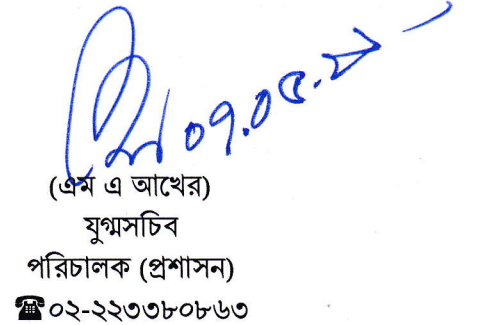 ০৭.০৫.
(এম এ আখের)
যুগ্মসচিব
পরিচালক (প্রশাসন)
☎০২-২২৩৩৮০৮৬৩